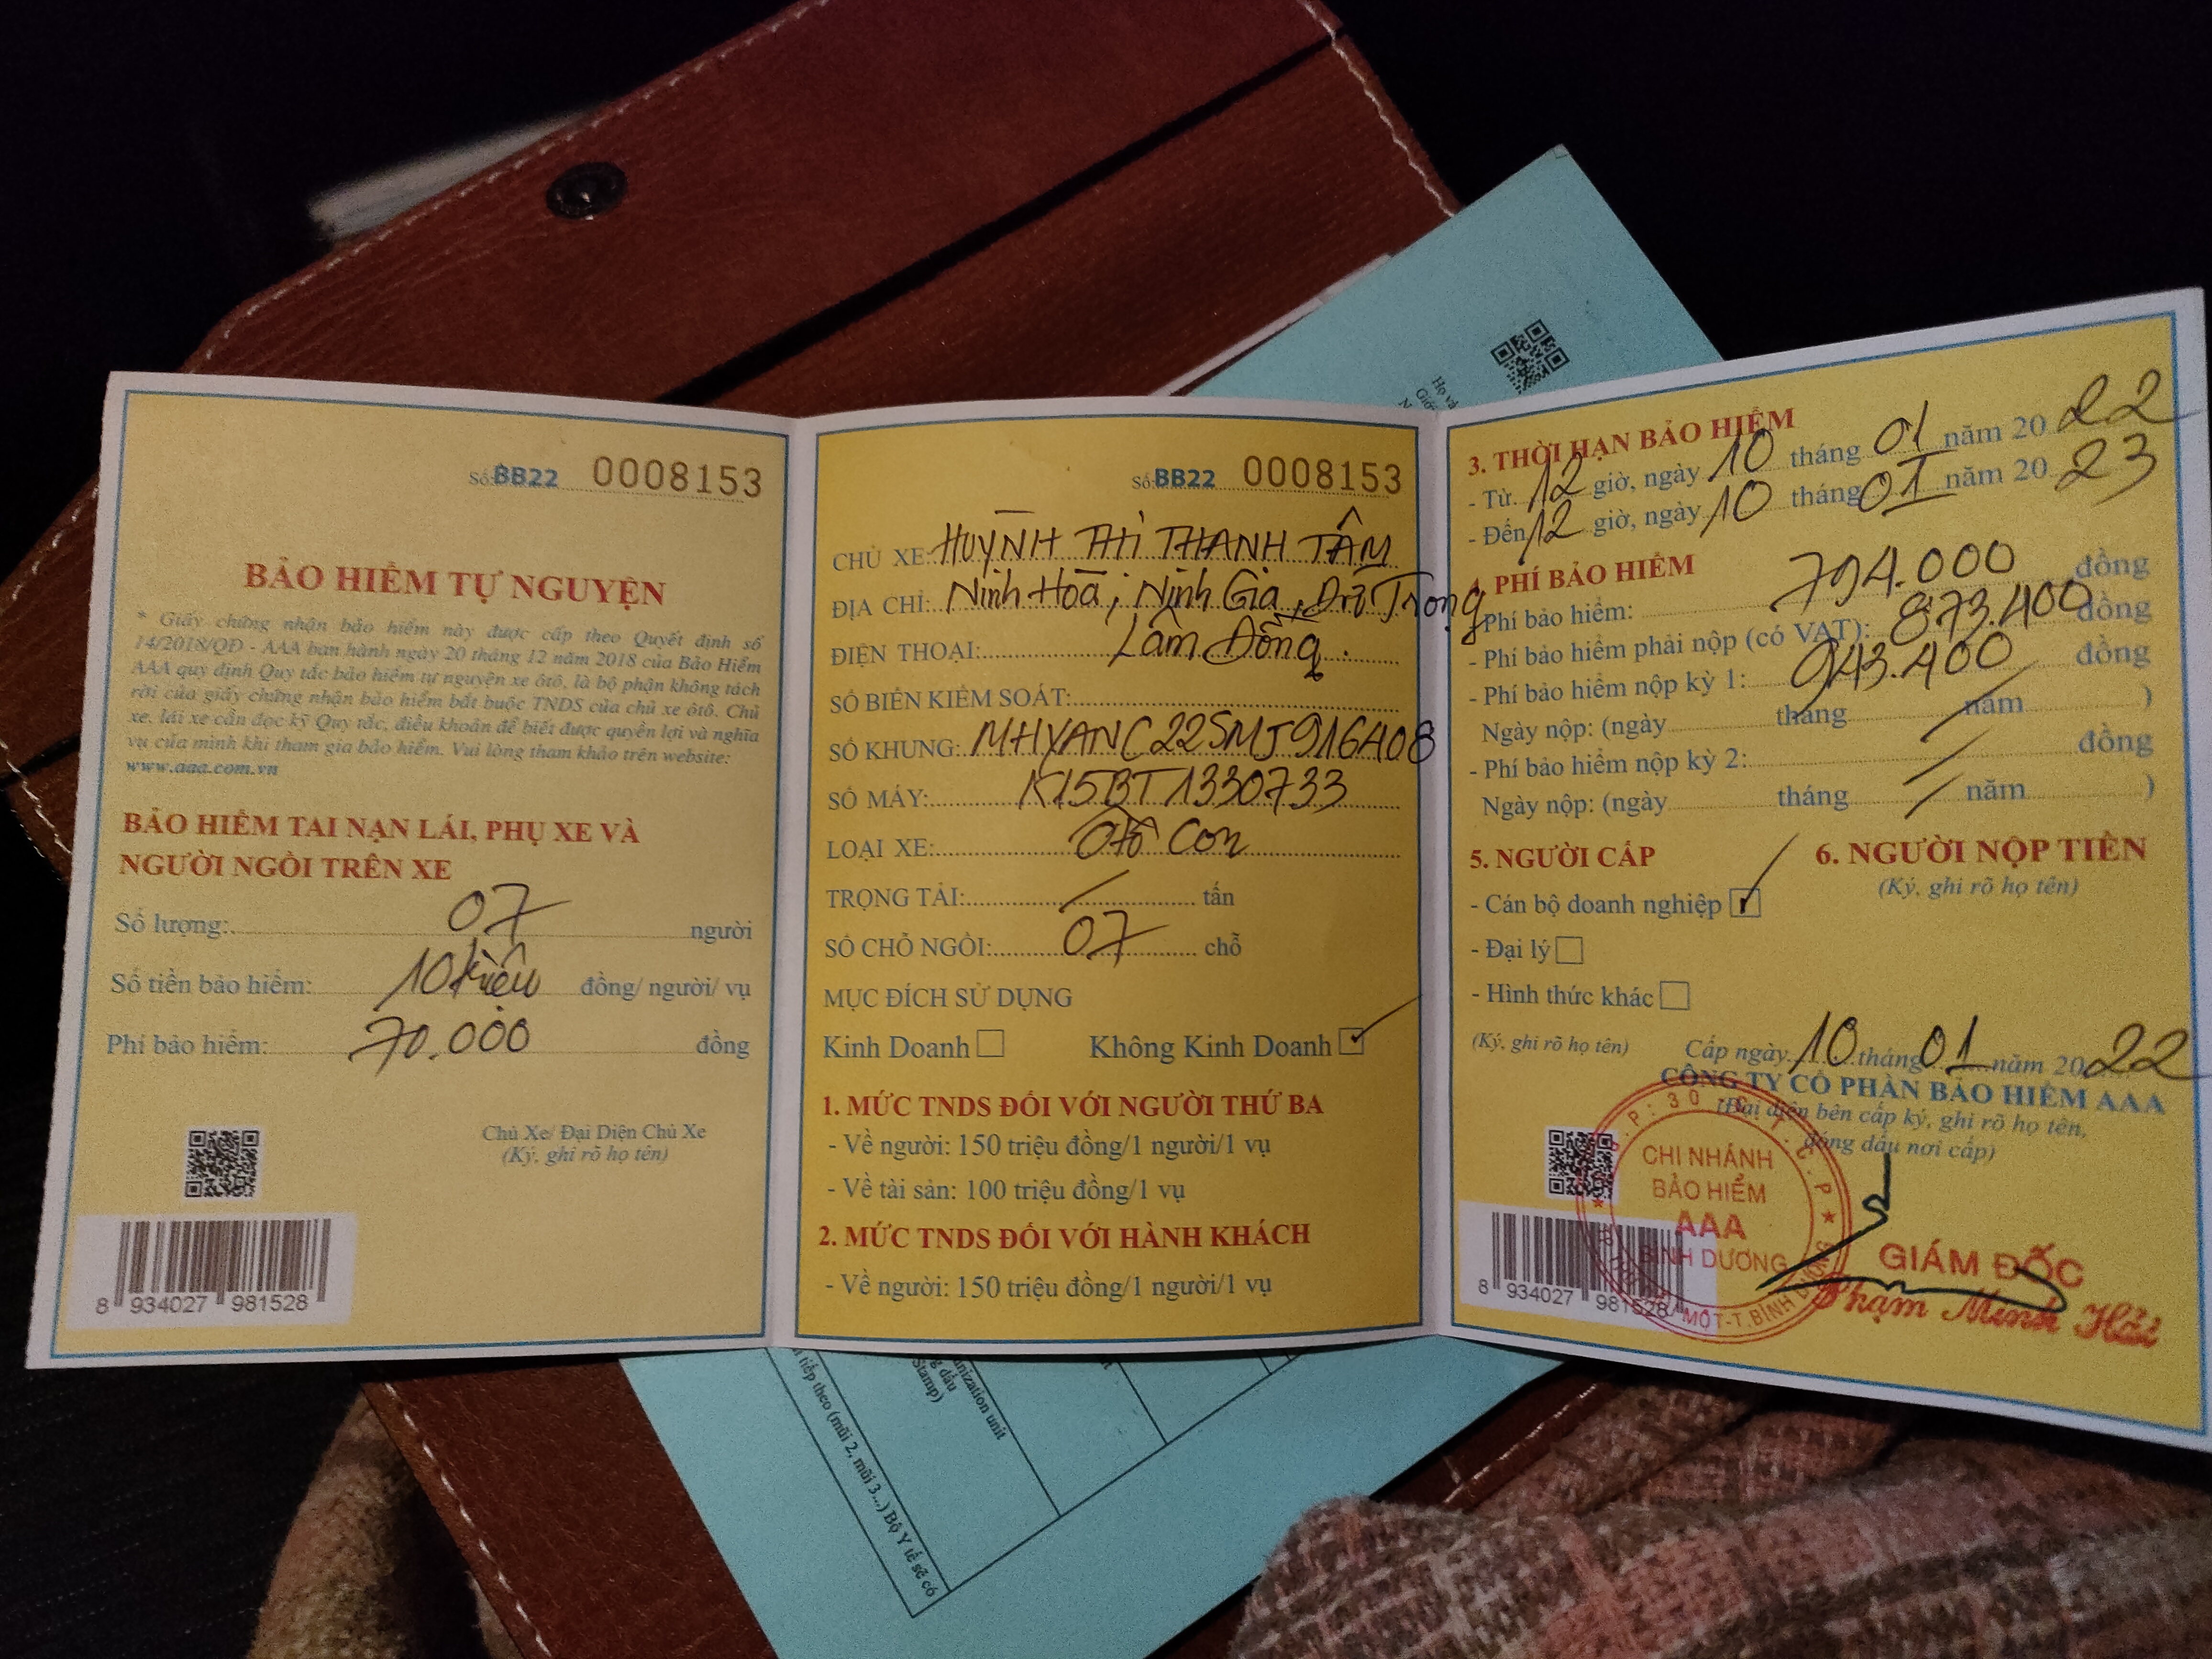 Số: BB22 0008153
BẢO HIỂM TỰ NGUYỆN
* Giấy chứng nhận bảo hiểm này được cấp theo Quyết định số
14/2018/QĐ - AAA ban hành ngày 20 tháng 12 năm 2018 của Bảo Hiểm
AAA quy định Quy tắc bảo hiểm tự nguyện xe ôtô, là bộ phận không tách
rời của giấy chứng nhận bảo hiểm bắt buộc TNDS của chủ xe ôtô. Chủ
xe, lái xe cần đọc kỹ Quy tắc, điều khoản để biết được quyền lợi và nghĩa
vụ của mình khi tham gia bảo hiểm. Vui lòng tham khảo trên website:
www.aaa.com.vn
BẢO HIỂM TAI NẠN LÁI, PHỤ XE VÀ
NGƯỜI NGỒI TRÊN XE
Số lượng: 07 người
Số tiền bảo hiểm: 10 triệu đồng/ người/ vụ
Phí bảo hiểm: 70.000 đồng
Chủ Xe/ Đại Diện Chủ Xe
(Ký, ghi rõ họ tên)
8 934027 981528
Số: BB22 0008153
CHỦ XE: HUỲNH THỊ THANH TÂM
ĐỊA CHỈ: Ninh Hoà, Ninh Gia, Đức Trọng
Lâm Đồng.
ĐIỆN THOẠI:
SỐ BIỂN KIỂM SOÁT:
SỐ KHUNG: MHYANC22SMJ916408
SỐ MÁY: K15BT1330733
LOẠI XE: Ôtô con
TRỌNG TẢI: / tấn
SỐ CHỖ NGỒI: 07 chỗ
MỤC ĐÍCH SỬ DỤNG
Kinh Doanh Không Kinh Doanh
1. MỨC TNDS ĐỐI VỚI NGƯỜI THỨ BA
- Về người: 150 triệu đồng/1 người/1 vụ
- Về tài sản: 100 triệu đồng/1 vụ
2. MỨC TNDS ĐỐI VỚI HÀNH KHÁCH
- Về người: 150 triệu đồng/1 người/1 vụ
3. THỜI HẠN BẢO HIỂM
- Từ 12 giờ, ngày 10 tháng 01 năm 2022
- Đến 12 giờ, ngày 10 tháng 01 năm 2023
4. PHÍ BẢO HIỂM
- Phí bảo hiểm: 794.000 đồng
- Phí bảo hiểm phải nộp (có VAT): 873.400 đồng
- Phí bảo hiểm nộp kỳ 1: 943.400 đồng
Ngày nộp: (ngày tháng năm )
- Phí bảo hiểm nộp kỳ 2: / đồng
Ngày nộp: (ngày tháng / năm )
5. NGƯỜI CẤP
- Cán bộ doanh nghiệp
- Đại lý
- Hình thức khác
(Ký, ghi rõ họ tên)
6. NGƯỜI NỘP TIỀN
(Ký, ghi rõ họ tên)
Cấp ngày 10 tháng 01 năm 2022
CÔNG TY CỔ PHẦN BẢO HIỂM AAA
(Đại diện bên cấp ký, ghi rõ họ tên,
đóng dấu nơi cấp)
CHI NHÁNH
BẢO HIỂM
AAA
BÌNH DƯƠNG
MỘT-T.BÌNH DƯƠNG
GIÁM ĐỐC
Phạm Minh Hải
8 934027 981528
Họ và
Giới
nization unit
Stamp)
tiếp theo (mũi 2, mũi 3...) Bộ Y tế sẽ có